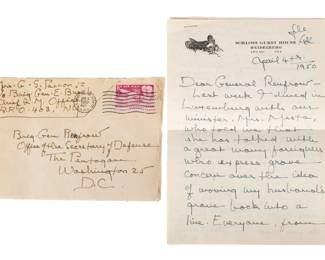 Mrs. G. S. Patton Jr
Gen E. Brooks
Office
A.P.O. 403,
Brig Gen Renfrow
Office of the Secretary of Defense
The Pentagon
Washington 25
D.C.
file
SCHLOSS GUEST HOUSE
HEIDELBERG
April 4th
1950
Dear General Renfrow
Last week I dined in
Luxemburg with our
minister, Mrs. Mesta,
who told me that
she has talked with
a great many foreigners
who express grave
concern over the idea
of moving my husband's
grave back into a
line. Everyone, from